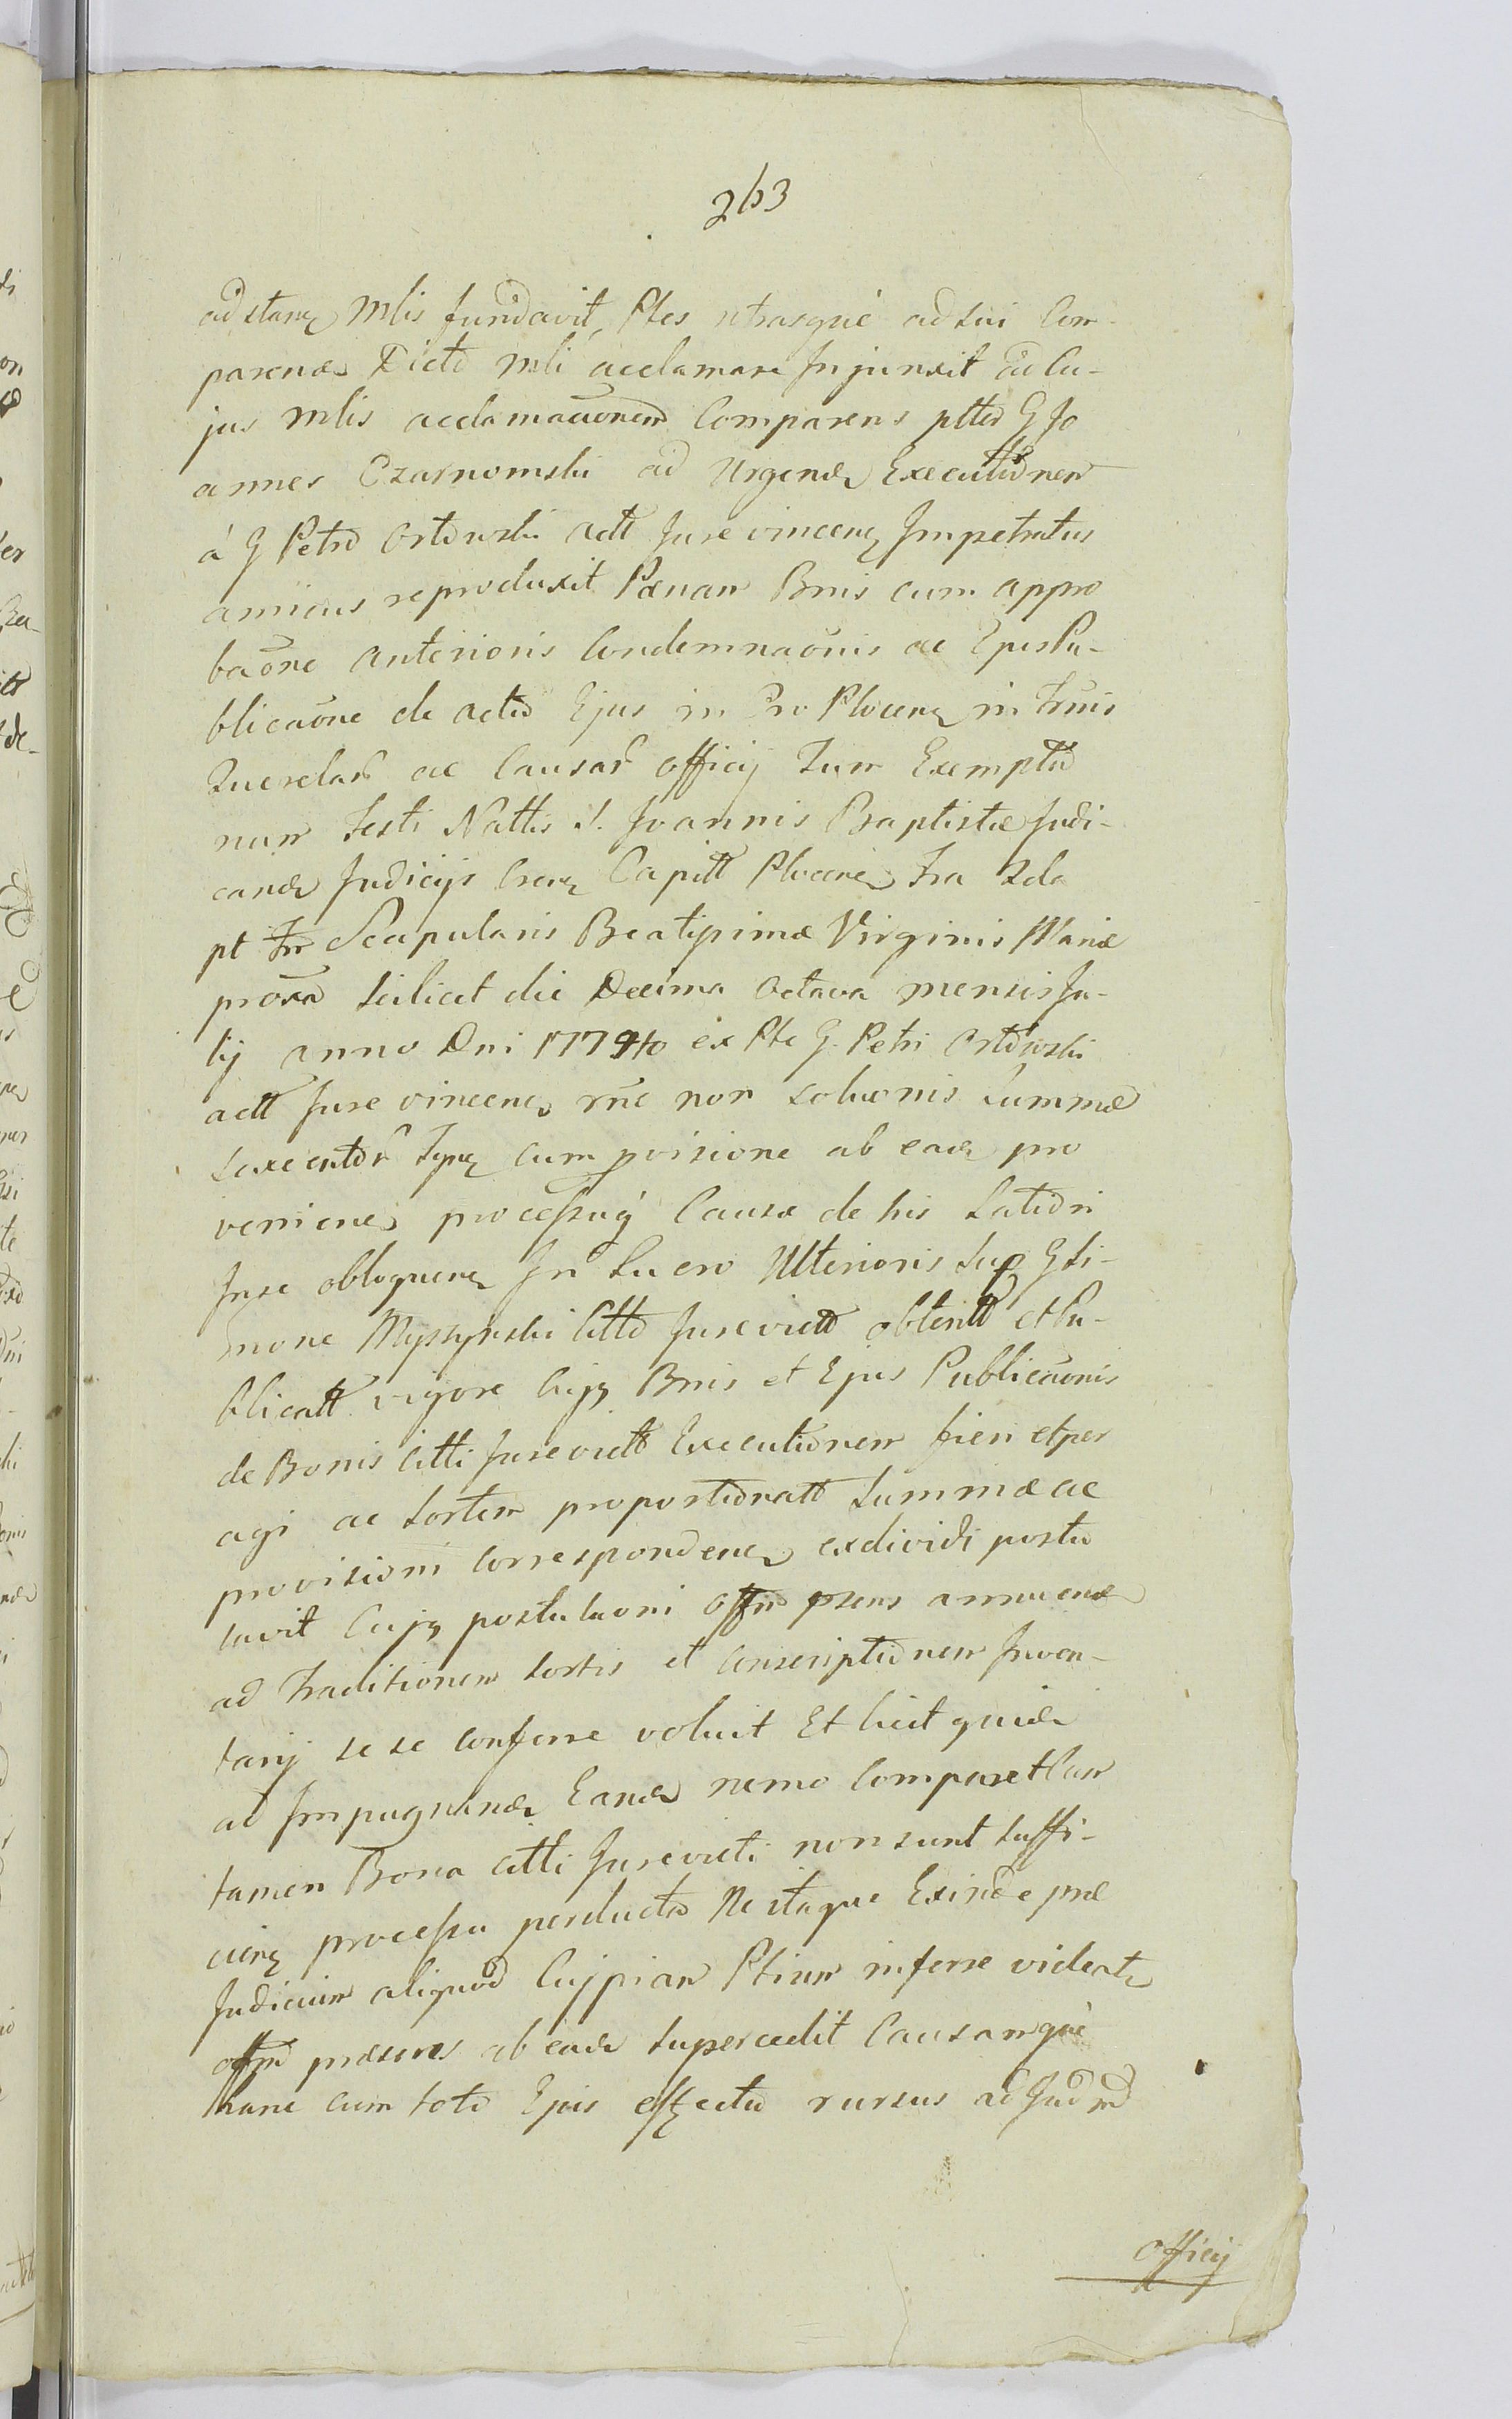 263
adstanz Mlis fundavit, Ptes utrasque ad sui Com-
parendz Dicto Mli acclamare Injunxit ad Cu-
jus Mlis acclamaõnem Comparens pttus G Jo
annes Czarnomski ad Urgendz Executionem
á G Petro Ortowski actt Jure vincenz Impetratus
amicus reproduxit Pænam Bnis cum appro
baõne anterioris Condemnaõnis ac Ejus Pu-
blicaõne de acto Ejus in Plocenz in Trnis
Querelar ac Causar officij Tum Exempto
num Festi Nattis S. Joannis Baptistæ Judi-
candz Judicijs Crenz Capitt Plocenz Fra 2da
pt Fr Scapularis Beatissimæ Virginis Mariæ
proxa scilicet die Decima Octava mensis Ju-
lij anno Dni 177 ex Pte G. Petri Ortowski
actt Jure vincenz rne non soluonis summæ
sexcentor Typz cum provisione ab eadz pro
venienz processuq Causæ de his Latiori
Inse obloquenz In Lucro Ulterioris sup G Si-
mone Myszynski Citto Jurevicto obtentt et Pu-
blicatt vigore Cujz Bnis et Ejus Publicaõnis
de Bonis Citti Jurevicti Executionem fieri et per
agi ac sortem proportionatt summæ ac
provisioni Correspondenz exdividi postu
lavit Cujz postulaoni Offm præns annuendz
ad Traditionem sortis et Conscriptionem Inven-
tarij se se conferre voluit Et licet quidz
ad Impugnandz Eandz nemo Comparet Cum
tamen Bona Citti Jurevicti non sunt suffi-
cienz processu perducta Ne itaque Exinde præ
Judicium aliquod Cujpiam Ptium inferre videatz
offm præsens ab eadz supercedit Causamque
hanc cum toto Ejus effectu rursus ad Judm
Officij